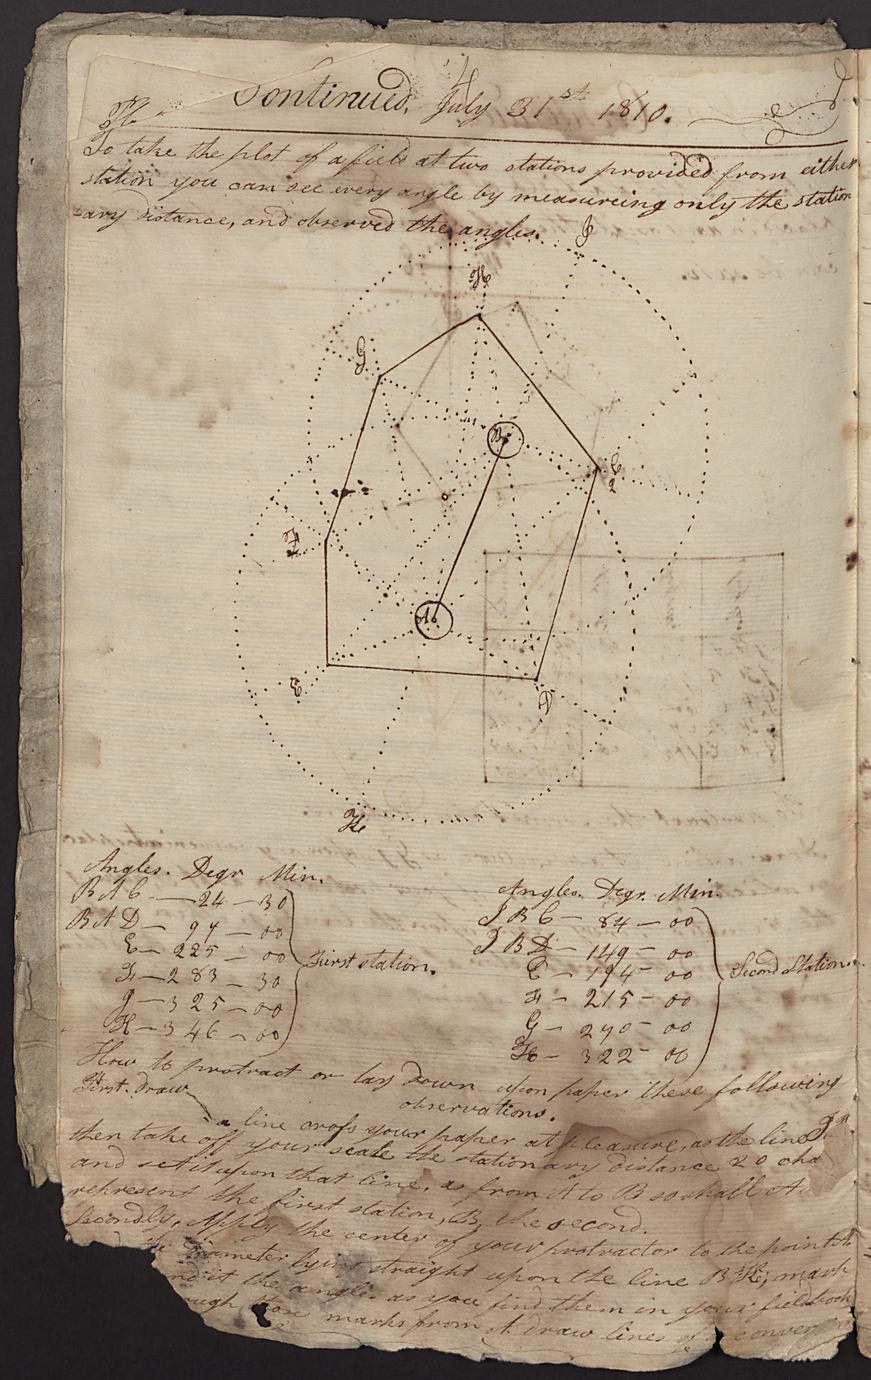 Continued, July 31st 1810.
To take the plot of a field at two stations provided from either
station you can see every angle by measureing only the station
ary distance, and observed the angles.
J
H
G
B
C
2
F
A
E
D
K
Angles. Degr Min.
B A C — 24 — 30
B A D — 97 — 00
E — 225 — 00
F — 283 — 30
g — 325 — 00
H — 346 — 00
First station.
Angles. Degr. Min.
J B C — 84 — 00
J B D — 149 — 00
E — 194 — 00
F — 215 — 00
G — 290 — 00
H — 322 — 00
Second Station.
How to protract or lay down upon paper these following
observations.
First. Draw
a line cross your paper at pleasure, as the line
then take off your scale the stationary distance 20 cha
and set it upon that line, as from A to B so shall A
represent the first station, B, the second.
Secondly, Apply the center of your protractor to the point
diameter lying straight upon the line B K; mark
it the angles as you find them in your fieldbook
those marks from A draw lines of